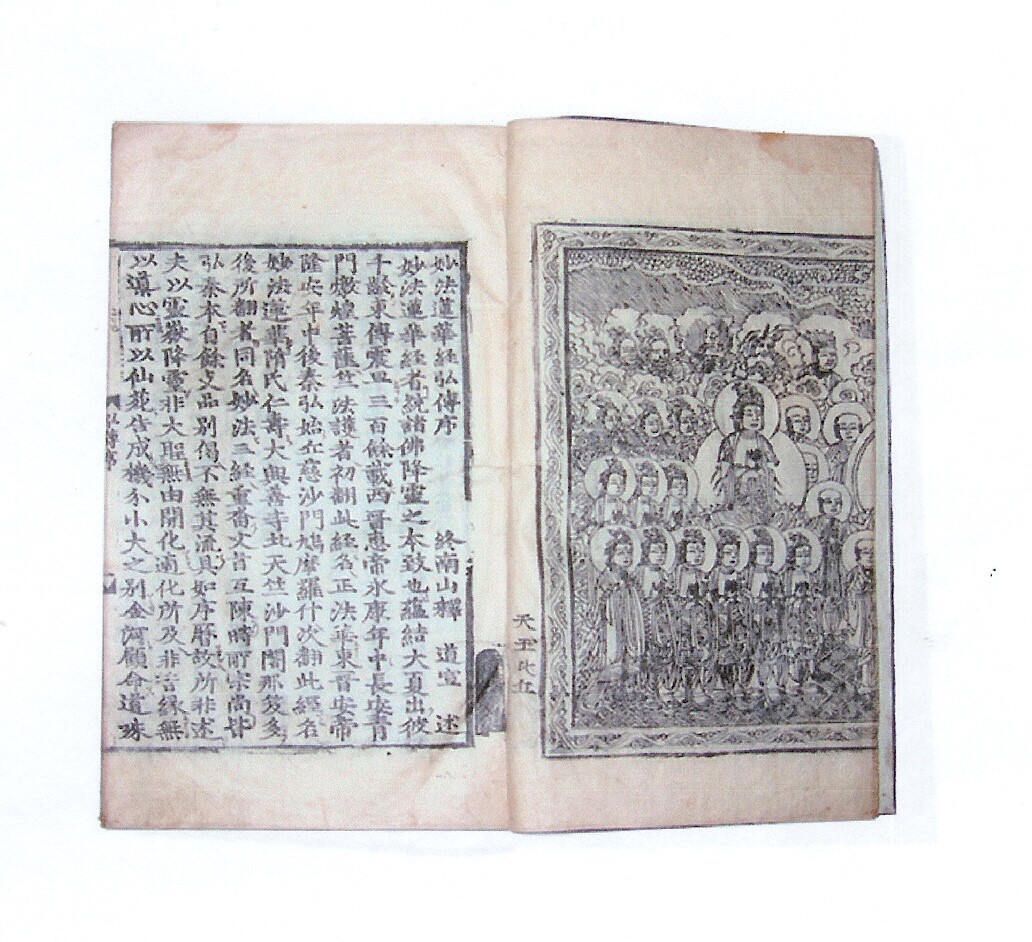 妙法蓮華經弘傳序 終南山釋 道宣 述
妙法蓮華經者統諸佛降靈之本致也蘊結大夏出彼
千齡東傳震旦三百餘載西晉惠帝永康年中長安青
門燉煌菩薩竺法護者初翻此經名正法華東晉安帝
隆安年中後秦弘始丘慈沙門鳩摩羅什次翻此經名
妙法蓮華隋氏仁壽大興善寺北天竺沙門闍那笈多
後所翻者同名妙法三經重沓文旨互陳時所宗尚皆
弘秦本自餘支品別偈不無其流具如序曆故所非述
夫以靈嶽降靈非大聖無由開化適化所及非昔緣無
以導心所以仙苑告成機分小大之別金河顧命道殊